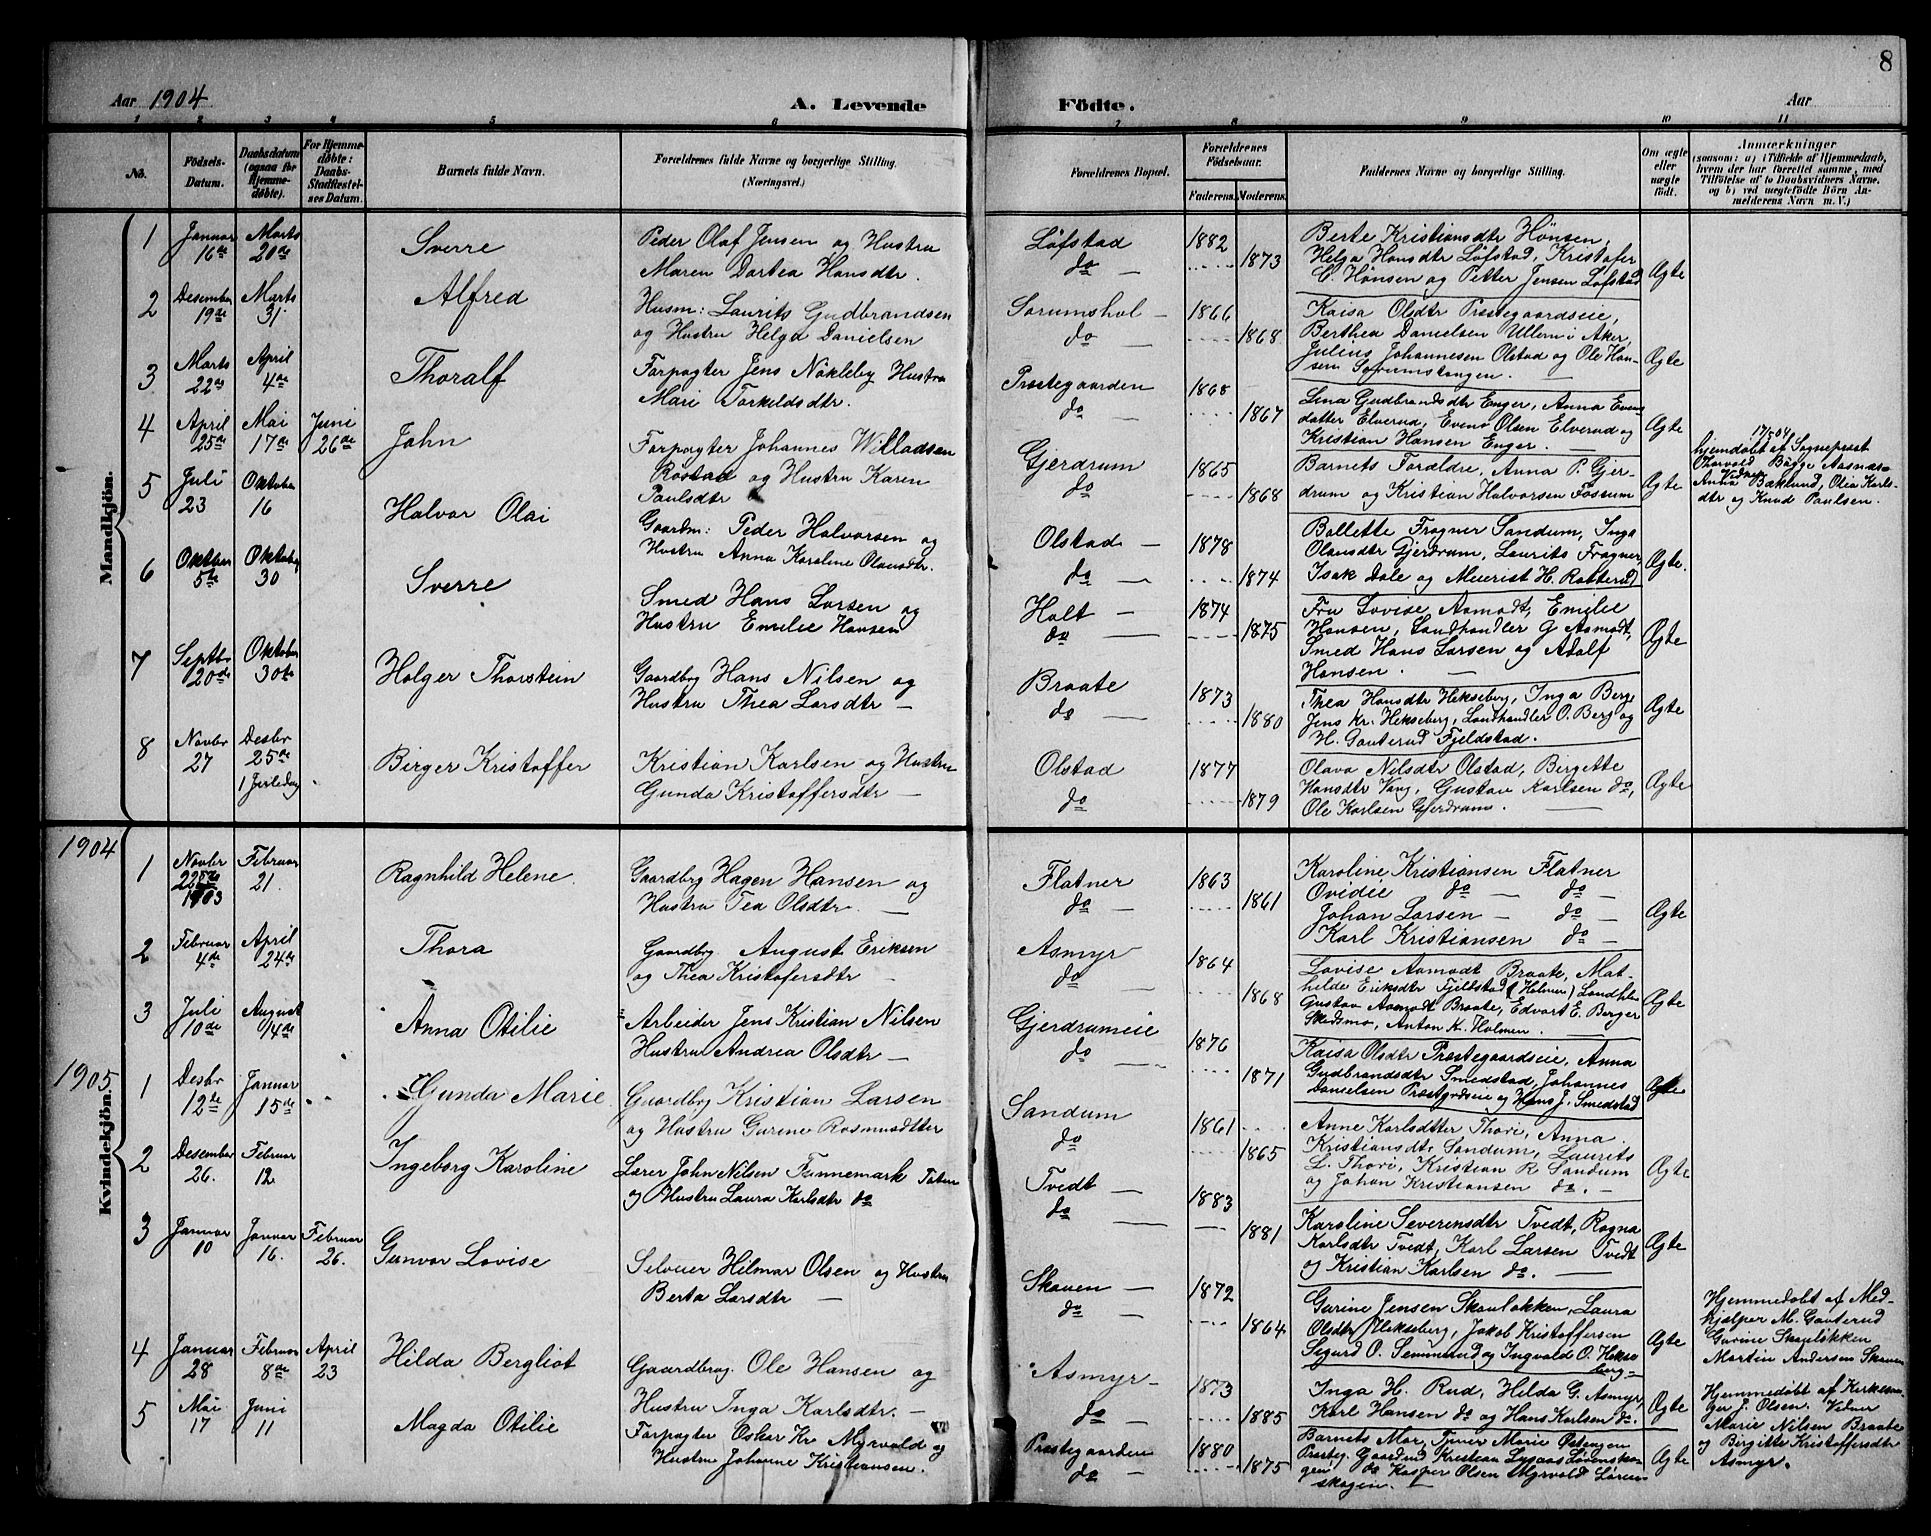 8
Aar 1904
A. Levende
Födte.
Aar
1 2 3 4 5 6 7 8 9 10 11
No.
Födsels-Datum.
Daabsdatum (ogsaa for Hjemme-döbte).
For Hjemme-döbte: Daabs-Stadfæstel-ses Datum.
Barnets fulde Navn.
Forældrenes fulde Navne og borgerlige Stilling.
(Næringsvei.)
Forældrenes Bopæl.
Forældrenes Födselsaar.
Faderens. Moderens.
Faddernes Navne og borgerlige Stilling.
Om ægte eller uægte födt.
Anmærkninger
(saasom: a) i Tilfælde af Hjemmedaab, hvem der har forrettet samme, med Tilföielse af to Daabsvidners Navne, og b) ved uægtefödte Börn An-melderens Navn m. V.)
Mandkjön.
1 Januar 16de Marts 20de Sverre
Peder Olaf Jensen og Hustru
Maren Dortea Hansdtr.
Löfstad do — 1882 1873
Berte Kristiansdtr Hönsen,
Helga Hansdtr Löfstad, Kristofer
C. Hönsen og Petter Jensen Löfstad
Ægte
2 Desember 19de Marts 31. Alfred
Husm: Laurits Gudbrandsen
og Hustru Helga Danielsen
Sørumshol — do — 1866 1868
Kaisa Olsdtr Præstegaardseie,
Berthea Danielsen Ullern i Aker,
Julius Johannesen Olstad og Ole Han-
sen Sørumstangen. —
Ægte
3 Marts 22de April 4de Thoralf
Forpagter Jens Nökleby Hustru
Mari Torkildsdtr.
Præstegaarden do — 1868 1867
Lina Gudbrandsdtr Enger, Anna Evens
datter Elverud, Even Olsen Elverud og
Kristian Hansen Enger. —
Ægte
4 April 25de Mai 17de Juni 26de John
Forpagter Johannes Willadsen
Röstad og Hustru Karen
Paulsdtr
Gjerdrum do 1865 1868
Barnets Forældre, Anna P. Gjer-
drum og Kristian Halvorsen Fossum
Ægte
17/5 04
hjemdöbt af Sogneprest
Thorvald Bögge Aasnæs
Vidner
Anna Baklund, Olia Karls-
dtr og Knud Paulsen.
5 Juli 23 Oktober 16 Halvor Olai
Gaardm: Peder Halvorsen og
Hustru Anna Karoline Olausdtr.
Olstad — do — 1878 1874
Bollette Fragner Sandum, Inga
Olausdtr Gjerdrum, Laurits Fragner,
Isak Dale og Meierist H. Ratterud
Ægte.
6 Oktber 5te Oktober 30 Sverre
Smed Hans Larsen og
Hustru Emilie Hansen
Holt — do — 1874 1875
Fru Lovise Asmodt, Emilie
Hansen, Landhandler G Asmodt,
Smed Hans Larsen og Adolf
Hansen. —
Ægte
7 Septbr 20de Oktober 30te Holger Thorstein
Gaardbrg Hans Nilsen og
Hustru Thea Larsdtr —
Braate do — 1873 1880
Thea Hansdtr Hekseberg, Inga Berg,
Jens Kr. Hekseberg, Landhandler O. Berg og
H. Gauterud Fjeldstad.
Ægte
8 Novbr 27 Desbr 25de 1 Juledag Birger Kristoffer
Kristian Karlsen og Hustru
Gunda Kristoffersdtr —
Olstad do — 1877 1879
Olava Nilsdtr Olstad, Bergette
Hansdtr Vang, Gustav Karlsen do,
Ole Karlsen Gjerdrum. —
Ægte
Kvindekjön.
1904
1 Novbr 22de 1903 Februar 21. Ragnhild Helene.
Gaardbrg Hagen Hansen og
Hustru Tea Olsdtr. —
Flatner do — 1863 1861
Karoline Kristiansen Flatner
Ovidie do — do —
Johan Larsen — do —
Karl Kristiansen do —
Ægte
2 Februar 4de April 24de Thora
Gaardbrg August Eriksen
og Thea Kristofersdtr —
Asmyr do — 1864 1868
Lovise Asmodt Braate, Mat-
hilde Eriksdtr Fjeldstad (Holmen) Landhdn
Gustav Asmodt Braate, Edvart E. Berger
Skedsmo, Anton K. Holmen.
Ægte
3 Juli 10de August 14de Anna Otilie
Arbeider Jens Kristian Nilsen
Hustru Andrea Olsdtr —
Gjerdrumeie do — 1876 1871
Kaisa Olsdtr Præstegaardseie, Anna
Gudbrandsdtr Smedstad, Johannes
Danielsen Præstgrdseie og Hans J. Smedstad
Ægte
1905
1 Desbr 12te Januar 15de Gunda Marie
Gaardbrg Kristian Larsen
og Hustru Gurine Rasmusdtter
Sandum do 1861 1865
Anne Karlsdtter Thori, Anna
Kristiansdtr Sandum, Laurits
L. Thori, Kristian R Sandum
og Johan Kristiansen do. —
Ægte
2 Desember 26. Februar 12 Ingeborg Karoline
Lærer John Nilsen Fannemark
og Hustru Laura Karlsdtr do
Tvedt — do — 1883 1881
Karoline Severensdtr Tvedt, Ragna
Karlsdtr Tvedt, Karl Larsen Tvedt
og Kristian Karlsen do. —
Ægte
3 Januar 10 Januar 16. Februar 26. Gunvor Lovise
Selveier Hilmar Olsen og Hustru
Berta Larsdtr —
Skaven — do — 1872 1864
Gurine Jensen Skaulökken, Laura
Olsdtr Hekseberg, Jakob Kristoffersen
Sigurd O. Semmerud og Ingvald O. Hekse
berg
Ægte
Hjemmedöbt af Med-
hjælper M. Gauterud
Gurine Skaulökken
Martin Andersen Skaven
4 Januar 28 Februar 8de April 23 Hilda Bergliot
Gaardbrg. Ole Hansen og
Hustru Inga Karlsdtr. —
Asmyr — do — 1873 1885
Inga H. Rud, Hilda G. Asmyr,
Karl Hansen do og Hans Karlsen do.
Ægte
Hjemmedöbt af Kirkesan-
ger J. Olsen. Vidner
Marie Nilsen Braate
og Birgitte Kristoffersdtr
Asmyr.
5 Mai 17 Juni 11 Magda Otilie
Forpagter Oskar Kr. Myrvold og
Hustru Johanne Kristiansen.
Præstegaarden do — 1880 1875
Barnets Mor, Tjener Marie Östengen
Præsteg. Gaardsud Kristian Lysaas Lövensko-
gen do Kasper Olsen Myrvold Lören-
skogen. —
Ægte